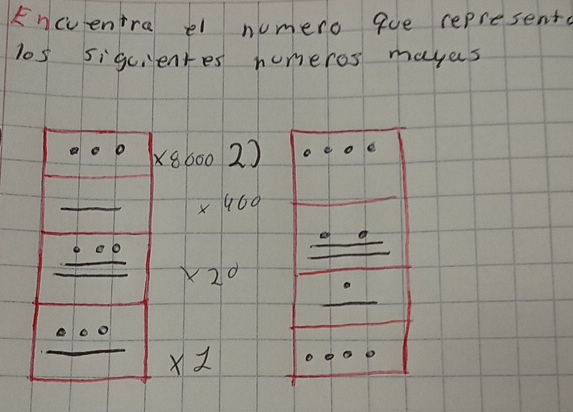 Encuentra el numero que represent
los siguientes numeros mayas
x8000 2)
x 400
x 20
x 1